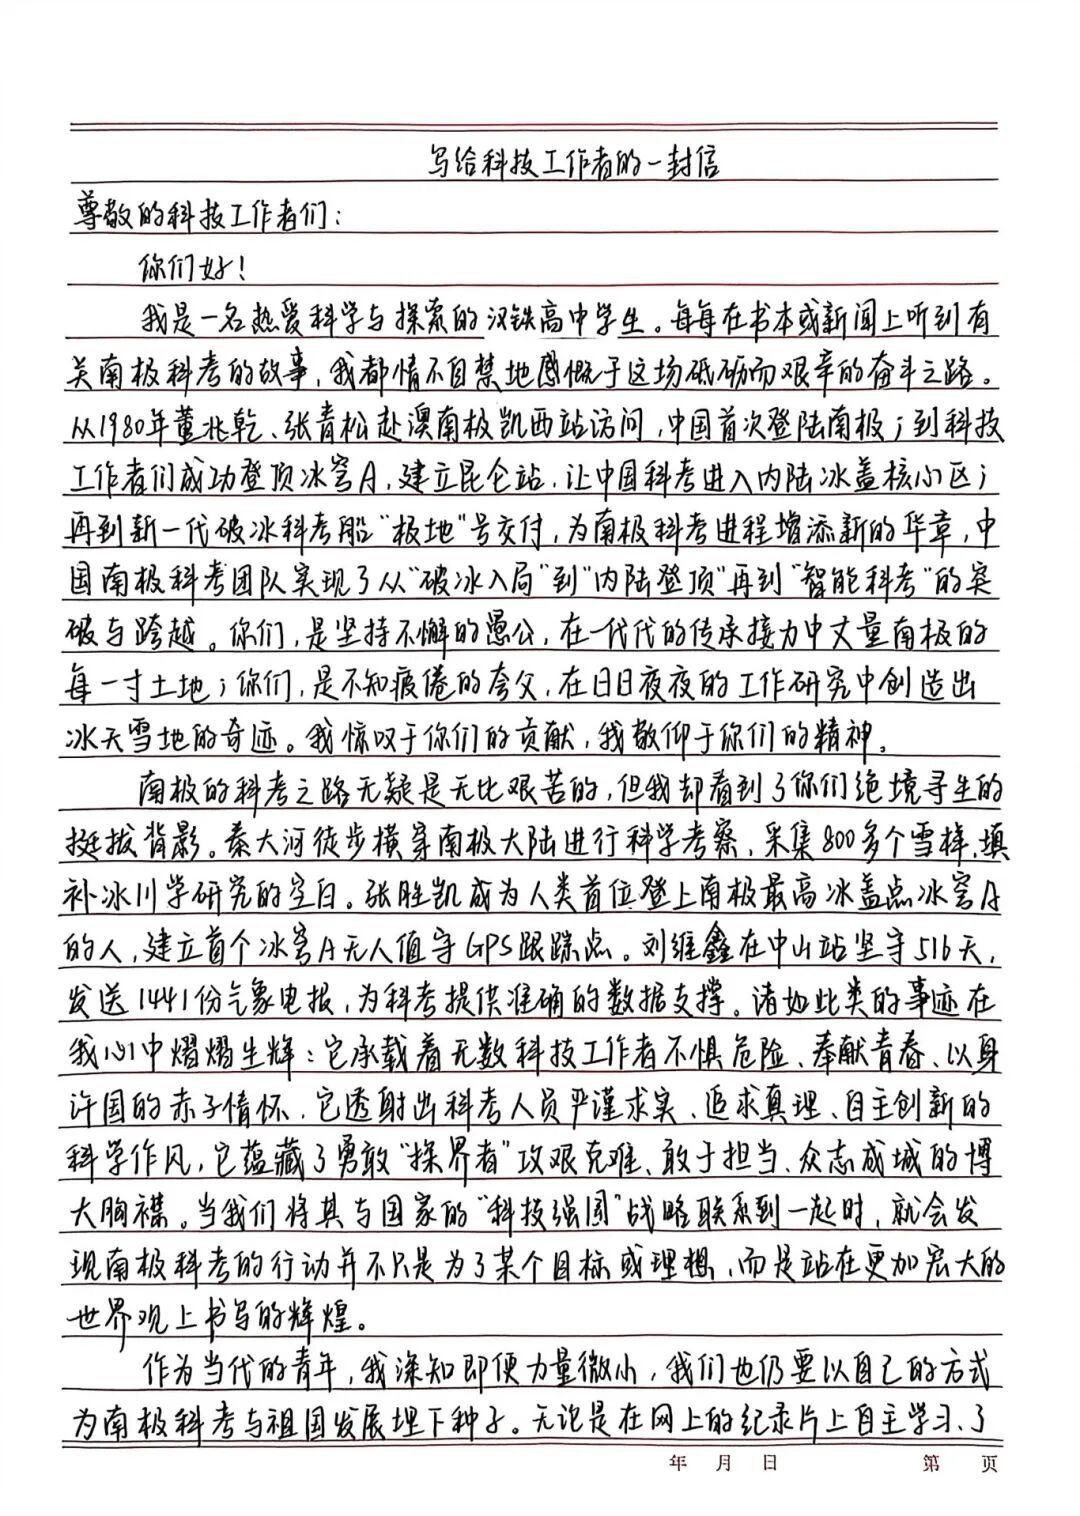 写给科技工作者的一封信
尊敬的科技工作者们：
你们好！
我是一名热爱科学与探索的汉铁高中学生。每每在书本或新闻上听到有
关南极科考的故事，我都情不自禁地感慨于这场砥砺而艰辛的奋斗之路。
从1980年董兆乾、张青松赴澳南极凯西站访问，中国首次登陆南极；到科技
工作者们成功登顶冰穹A，建立昆仑站，让中国科考进入内陆冰盖核心区；
再到新一代破冰科考船“极地”号交付，为南极科考进程增添新的华章，中
国南极科考团队实现了从“破冰入局”到“内陆登顶”再到“智能科考”的突
破与跨越。你们，是坚持不懈的愚公，在一代代的传承接力中丈量南极的
每一寸土地；你们，是不知疲倦的夸父，在日日夜夜的工作研究中创造出
冰天雪地的奇迹。我惊叹于你们的贡献，我敬仰于你们的精神。
南极的科考之路无疑是无比艰苦的，但我却看到了你们绝境寻生的
挺拔背影。秦大河徒步横穿南极大陆进行科学考察，采集800多个雪样，填
补冰川学研究的空白。张胜凯成为人类首位登上南极最高冰盖点冰穹A
的人，建立首个冰穹A无人值守GPS跟踪点。刘维鑫在中山站坚守516天，
发送1441份气象电报，为科考提供准确的数据支撑。诸如此类的事迹在
我心中熠熠生辉：它承载着无数科技工作者不惧危险、奉献青春、以身
许国的赤子情怀，它透射出科考人员严谨求实、追求真理、自主创新的
科学作风，它蕴藏了勇敢“探界者”攻艰克难、敢于担当、众志成城的博
大胸襟。当我们将其与国家的“科技强国”战略联系到一起时，就会发
现南极科考的行动并不只是为了某个目标或理想，而是站在更加宏大的
世界观上书写的辉煌。
作为当代的青年，我深知即便力量微小，我们也仍要以自己的方式
为南极科考与祖国发展埋下种子。无论是在网上的纪录片上自主学习、了
年 月 日 第 页